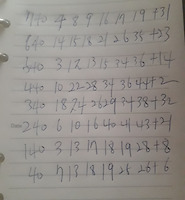 740 4 8 9 16 17 19 +31
640 14 15 18 21 26 35 +23
540 3 12 13 15 34 36 +14
440 10 22 28 34 36 44 +2
340 18 24 26 29 34 38 +32
240 6 10 16 40 41 43 +21
140 3 13 17 18 19 28 +8
40 7 13 18 19 25 26 +6